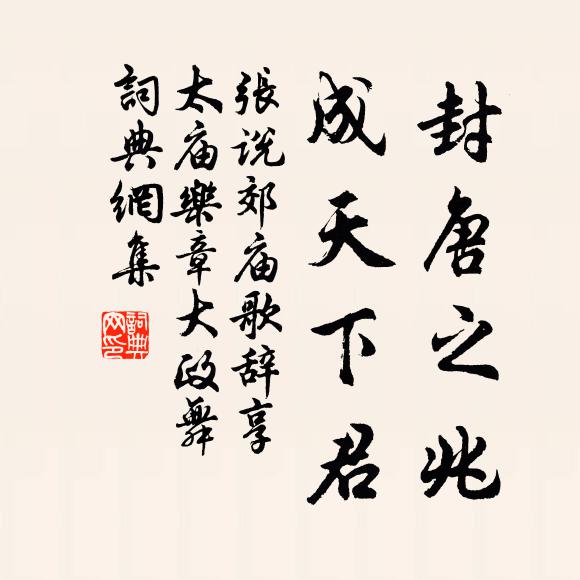 封唐之兆
成天下君
張说郊庙歌辞享
太庙樂章大政舞
詞典網集
詞典
网印